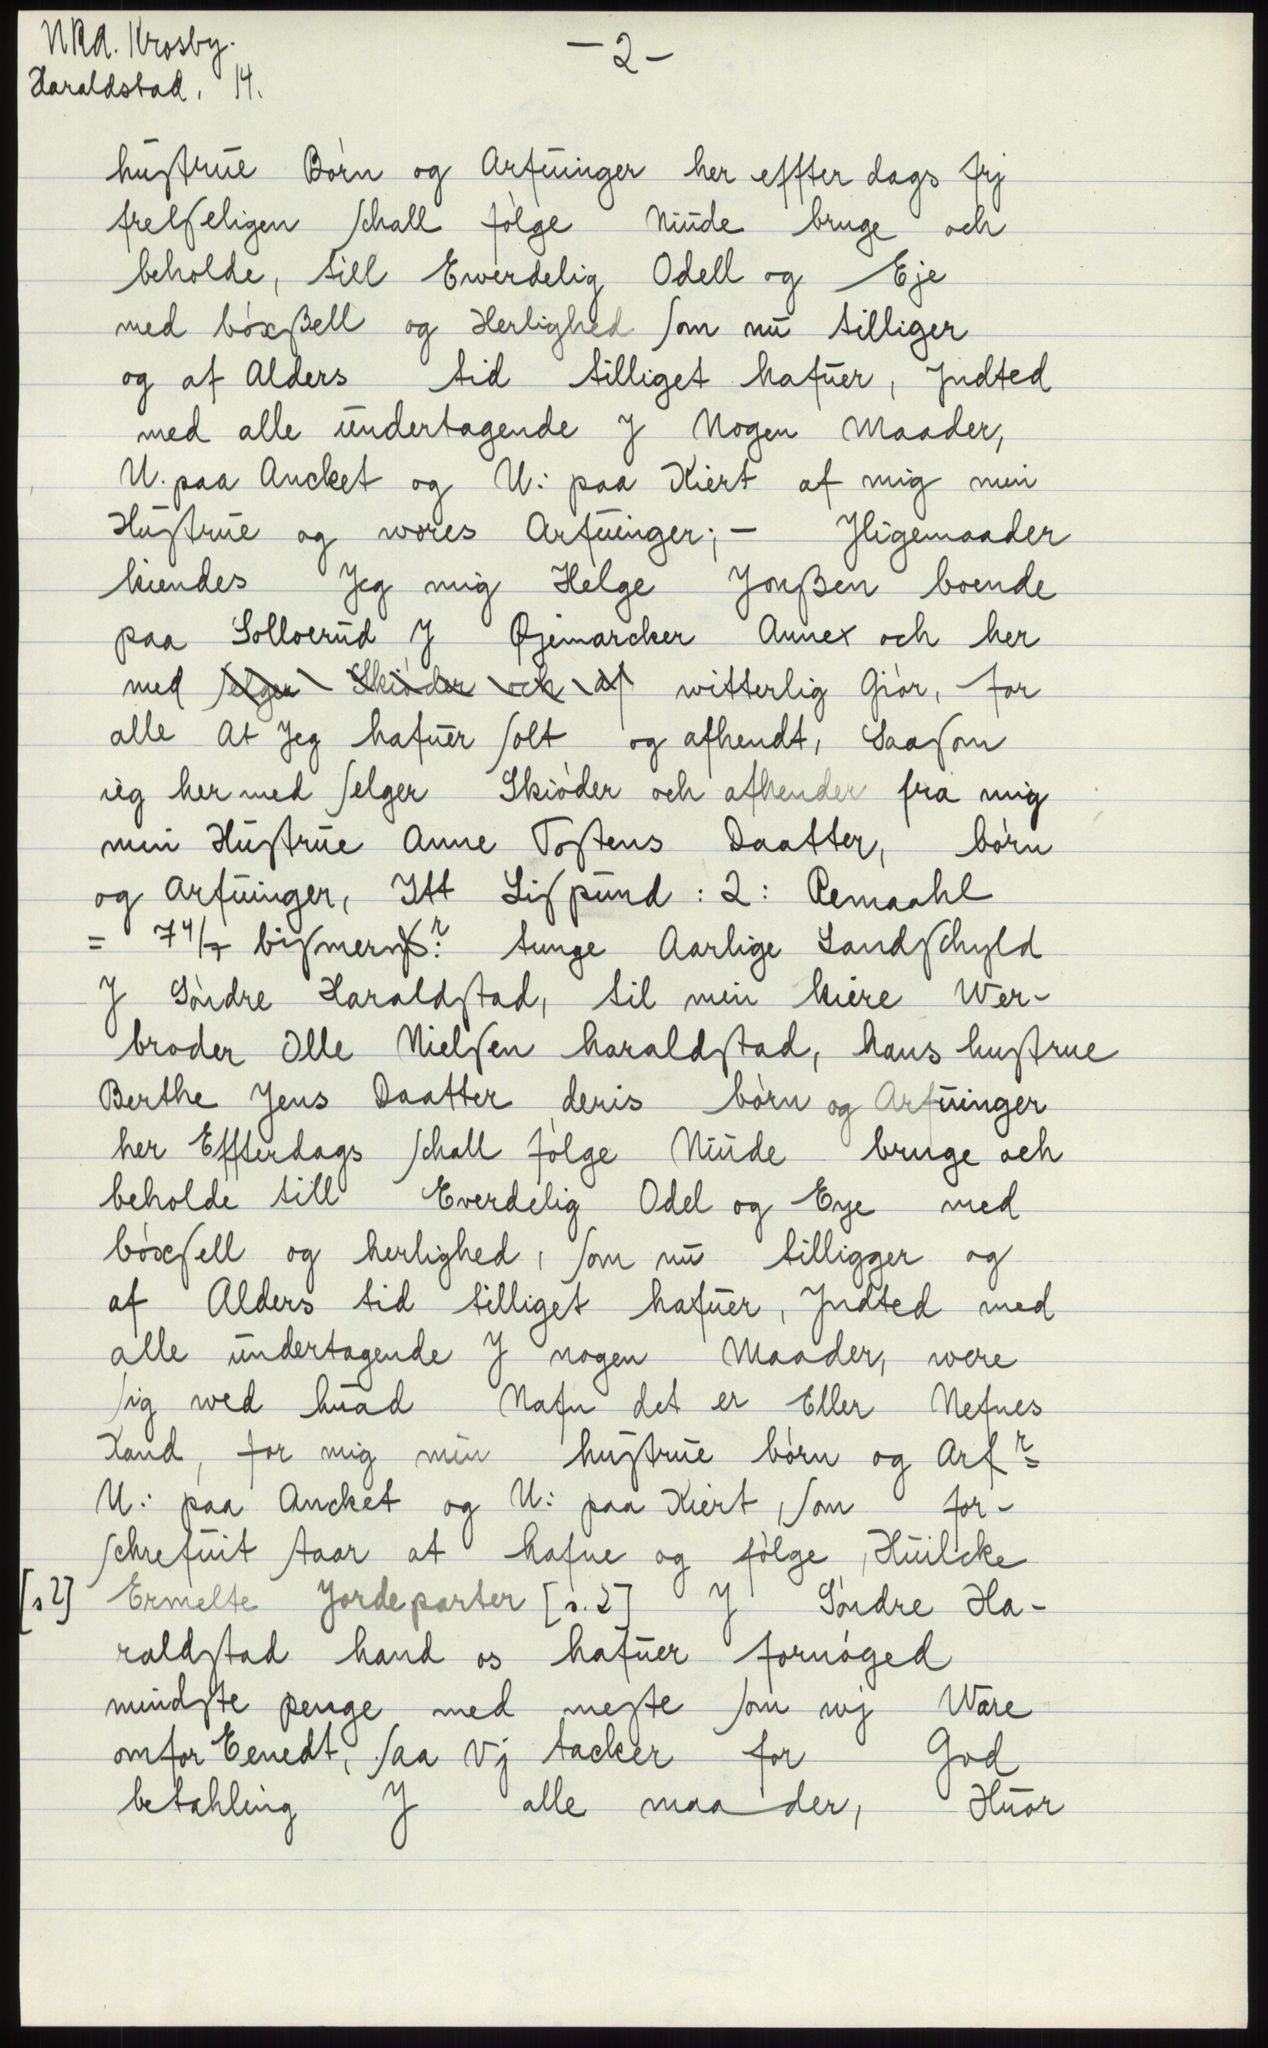 NRA. Krosby.
Haraldstad. 14.
- 2 -
huſtrue Börn og Arfuinger her effter dags frj
frelſeligen ſchall fölge Niude bruge och
beholde, till Ewerdelig Odell og Eje
med böxßell og Herlighed ſom nu tilliger
og af Alders tid tilliget hafuer, Jndted
med alle undertagende J Nogen Maader,
U. paa Ancket og U: paa Kiert af mig min
Huſtrue og wores Arfuinger; - Jligemaader
kiendes Jeg mig Helge Jonßen boende
paa Solloerud J Øjemarcker Annex och her
med ſelger Skiöder och af witterlig Giör, for
alle At Jeg hafuer ſolt og afhendt, Saaſom
ieg her med ſelger Skiöder och afhender fra mig
min Huſtrue Anne Toſtens Daatter, börn
og Arfuinger, Itt Liſpund : 2: Remaahl
= 7 4/7 biſmer tunge Aarlige Landſchyld
J Söndre Haraldſtad, til min kiere Wer-
broder Olle Nielſen haraldſtad, hans huſtrue
Berthe Jens Daatter deris börn og Arfuinger
her Effterdags ſchall fölge Niude bruge och
beholde till Everdelig Odel og Eye med
böxſell og herlighed, ſom nu tilligger og
af Alders tid tilliget hafuer, Jndted med
alle undertagende J nogen Maader, were
ſig wed huad Nafn det er Eller Nefnes
Kand, for mig min huſtrue börn og Arfr
U: paa Ancket og U: paa Kiert, ſom for-
ſchrefuit ſtaar at hafue og fölge, Huilcke
[s 2] Ermelte Jordeparter [s. 2] J Söndre Ha-
raldſtad hand os hafuer fornöged
mindſte penge med meſte ſom wj Ware
omfor Eenedt, ſaa Vj tacker for God
betahling J alle maader, Huor